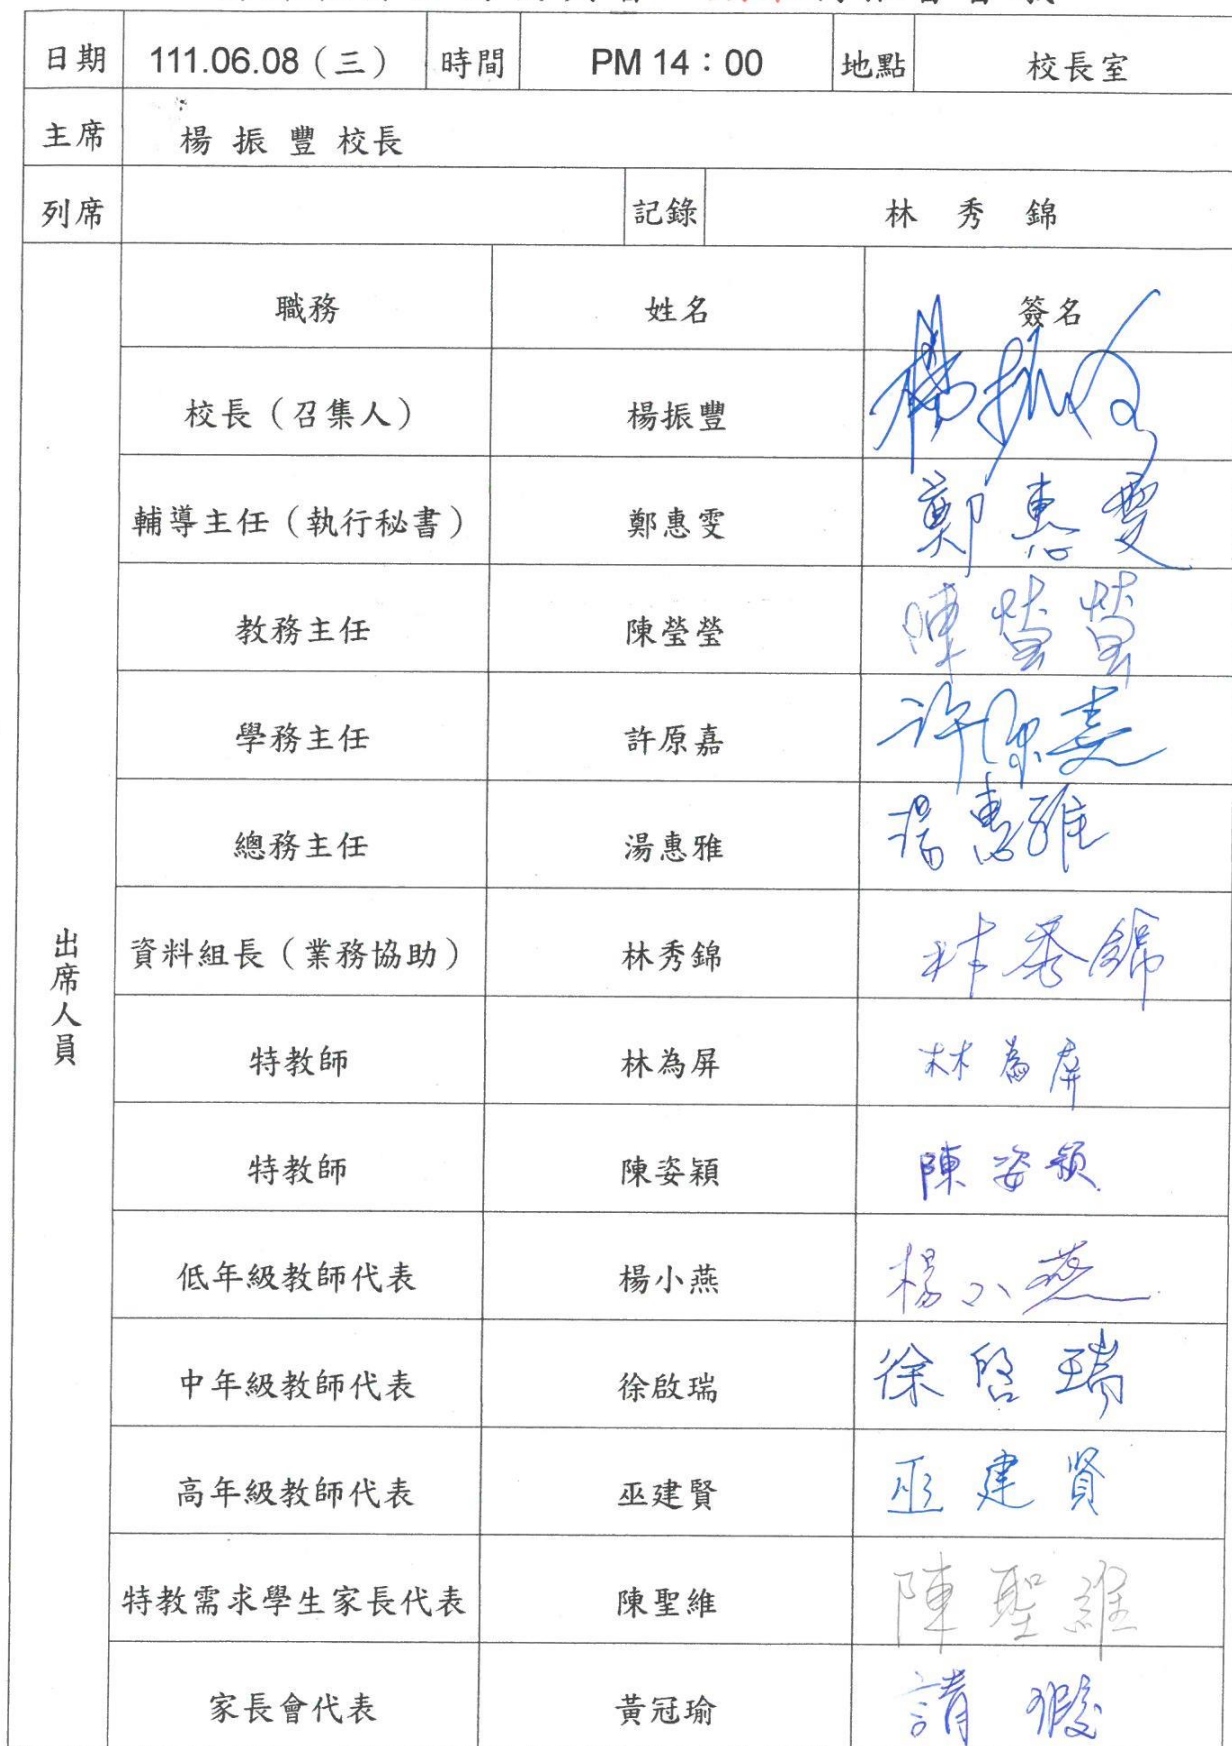 日期 111.06.08（三） 時間 PM 14：00 地點 校長室
主席 楊 振 豐 校長
列席 記錄 林 秀 錦
職務 姓名 簽名
校長（召集人） 楊振豐 楊振
輔導主任（執行秘書） 鄭惠雯 鄭惠雯
教務主任 陳瑩瑩 陳瑩瑩
學務主任 許原嘉 許原嘉
總務主任 湯惠雅 湯惠雅
出席人員
資料組長（業務協助） 林秀錦 林秀錦
特教師 林為屏 林為屏
特教師 陳姿穎 陳姿穎
低年級教師代表 楊小燕 楊小燕
中年級教師代表 徐啟瑞 徐啓瑞
高年級教師代表 巫建賢 巫建賢
特教需求學生家長代表 陳聖維 陳聖維
家長會代表 黃冠瑜 請假